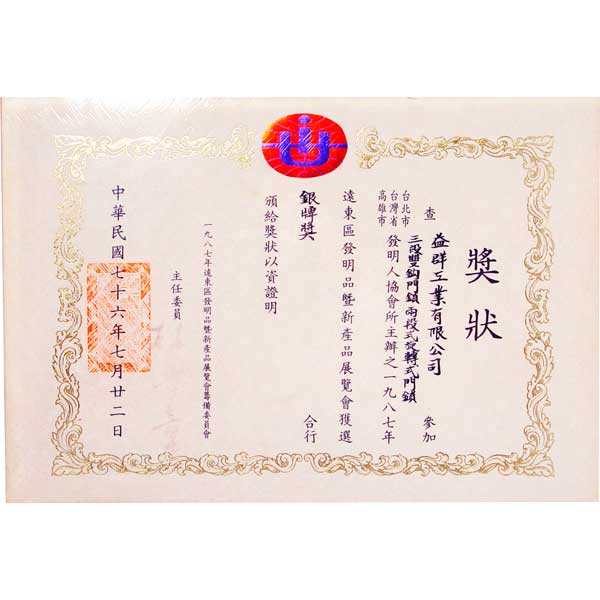 獎狀
查 益群工業有限公司 參加
三段雙鈎門鎖 兩段式旋轉式門鎖
台北市
台灣省 發明人協會所主辦之一九八七年
高雄市
遠東區發明品暨新產品展覽會獲選
銀牌獎 合行
頒給獎狀以資證明
一九八七年遠東區發明品暨新產品展覽會籌備委員會
主任委員
中華民國七十六年七月廿二日